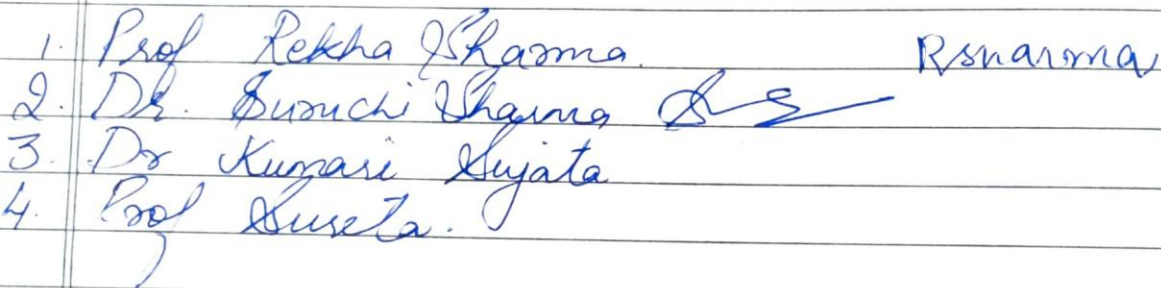 1. Prof Rekha Sharma. Rsharma
2. Dr. Suruchi Sharma
3. Dr Kumari Sujata
4. Prof